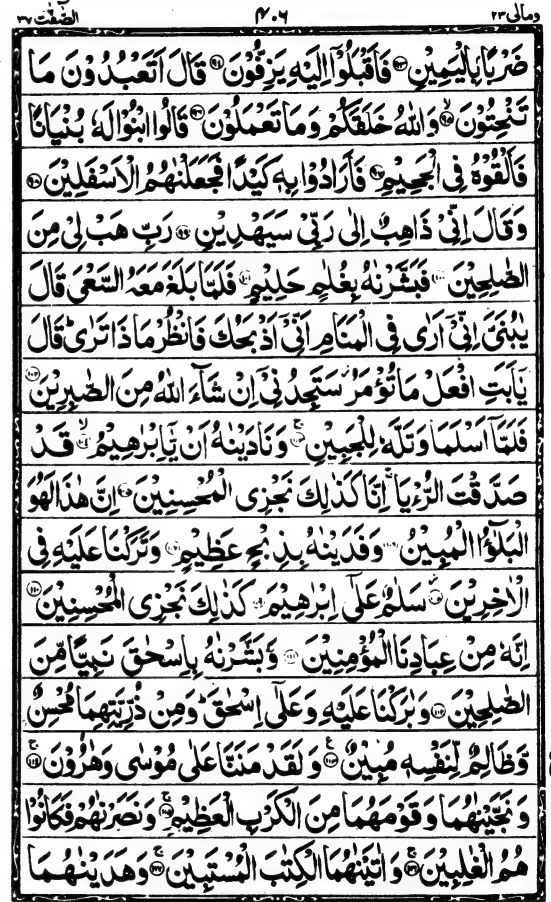 ومالى ٢٣ ٤٠٦ الصّٰٓفّٰت ٣٧
ضَرْبًۢا بِالْيَمِيْنِ ﴿٩٣﴾ فَاَقْبَلُوْۤا اِلَيْهِ يَزِفُّوْنَ ﴿٩٤﴾ قَالَ اَتَعْبُدُوْنَ مَا
تَنْحِتُوْنَ ﴿٩٥﴾ وَاللّٰهُ خَلَقَكُمْ وَمَا تَعْمَلُوْنَ ﴿٩٦﴾ قَالُوا ابْنُوْا لَهٗ بُنْيَانًا
فَاَلْقُوْهُ فِى الْجَحِيْمِ ﴿٩٧﴾ فَاَرَادُوْا بِهٖ كَيْدًا فَجَعَلْنٰهُمُ الْاَسْفَلِيْنَ ﴿٩٨﴾
وَقَالَ اِنِّىْ ذَاهِبٌ اِلٰى رَبِّىْ سَيَهْدِيْنِ ﴿٩٩﴾ رَبِّ هَبْ لِىْ مِنَ
الصّٰلِحِيْنَ ﴿١٠٠﴾ فَبَشَّرْنٰهُ بِغُلٰمٍ حَلِيْمٍ ﴿١٠١﴾ فَلَمَّا بَلَغَ مَعَهُ السَّعْىَ قَالَ
يٰبُنَىَّ اِنِّىْۤ اَرٰى فِى الْمَنَامِ اَنِّىْۤ اَذْبَحُكَ فَانْظُرْ مَاذَا تَرٰى ؕ قَالَ
يٰۤاَبَتِ افْعَلْ مَا تُؤْمَرُ سَتَجِدُنِىْۤ اِنْ شَآءَ اللّٰهُ مِنَ الصّٰبِرِيْنَ ﴿١٠٢﴾
فَلَمَّاۤ اَسْلَمَا وَتَلَّهٗ لِلْجَبِيْنِ ﴿١٠٣﴾ وَنَادَيْنٰهُ اَنْ يّٰۤاِبْرٰهِيْمُ ﴿١٠٤﴾ قَدْ
صَدَّقْتَ الرُّءْيَا ۚ اِنَّا كَذٰلِكَ نَجْزِى الْمُحْسِنِيْنَ ﴿١٠٥﴾ اِنَّ هٰذَا لَهُوَ
الْبَلٰٓؤُا الْمُبِيْنُ ﴿١٠٦﴾ وَفَدَيْنٰهُ بِذِبْحٍ عَظِيْمٍ ﴿١٠٧﴾ وَتَرَكْنَا عَلَيْهِ فِى
الْاٰخِرِيْنَ ﴿١٠٨﴾ سَلٰمٌ عَلٰٓى اِبْرٰهِيْمَ ﴿١٠٩﴾ كَذٰلِكَ نَجْزِى الْمُحْسِنِيْنَ ﴿١١٠﴾
اِنَّهٗ مِنْ عِبَادِنَا الْمُؤْمِنِيْنَ ﴿١١١﴾ وَبَشَّرْنٰهُ بِاِسْحٰقَ نَبِيًّا مِّنَ
الصّٰلِحِيْنَ ﴿١١٢﴾ وَبٰرَكْنَا عَلَيْهِ وَعَلٰٓى اِسْحٰقَ ؕ وَمِنْ ذُرِّيَّتِهِمَا مُحْسِنٌ
وَّظَالِمٌ لِّنَفْسِهٖ مُبِيْنٌ ﴿١١٣﴾ وَلَقَدْ مَنَنَّا عَلٰى مُوْسٰى وَهٰرُوْنَ ﴿١١٤﴾
وَنَجَّيْنٰهُمَا وَقَوْمَهُمَا مِنَ الْكَرْبِ الْعَظِيْمِ ﴿١١٥﴾ وَنَصَرْنٰهُمْ فَكَانُوْا
هُمُ الْغٰلِبِيْنَ ﴿١١٦﴾ وَاٰتَيْنٰهُمَا الْكِتٰبَ الْمُسْتَبِيْنَ ﴿١١٧﴾ وَهَدَيْنٰهُمَا